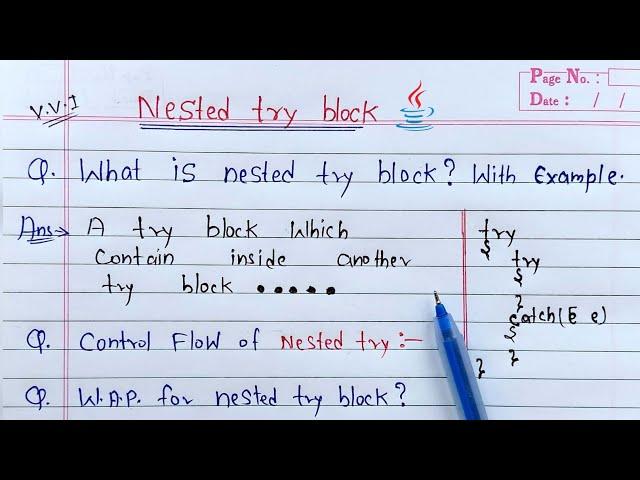 Page No. :
Date : / /
V.V.I
Nested try block
Q. What is nested try block? With Example.
Ans→ A try block Which
Contain inside another
try block •••••
try
{
try
{
}
catch(E e)
{
}
}
Q. Control Flow of Nested try :-
Q. W.A.P. for nested try block?